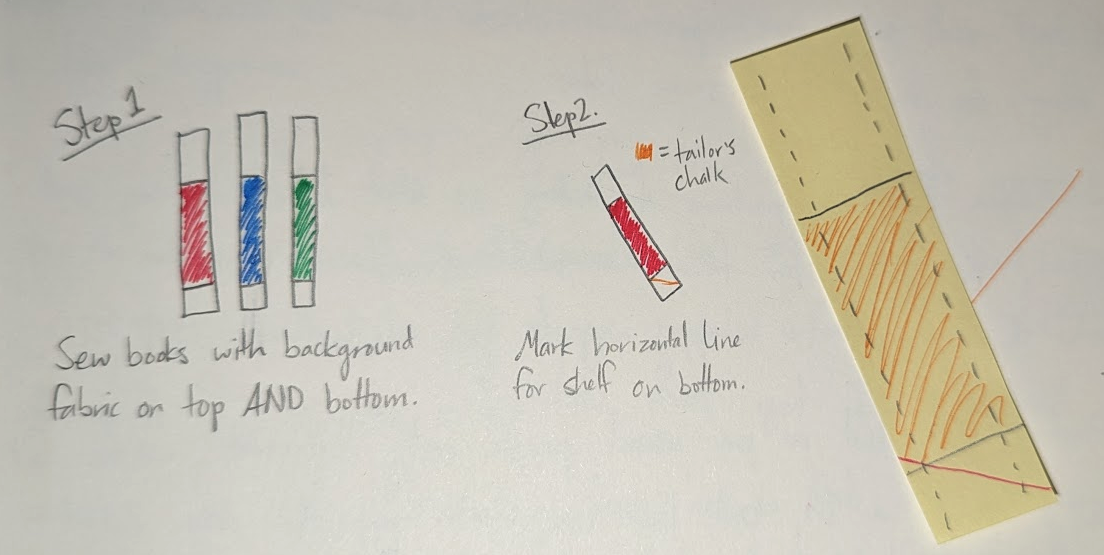 Step 1
Sew books with background
fabric on top AND bottom.
Step 2.
= tailor's
chalk
Mark horizontal line
for shelf on bottom.